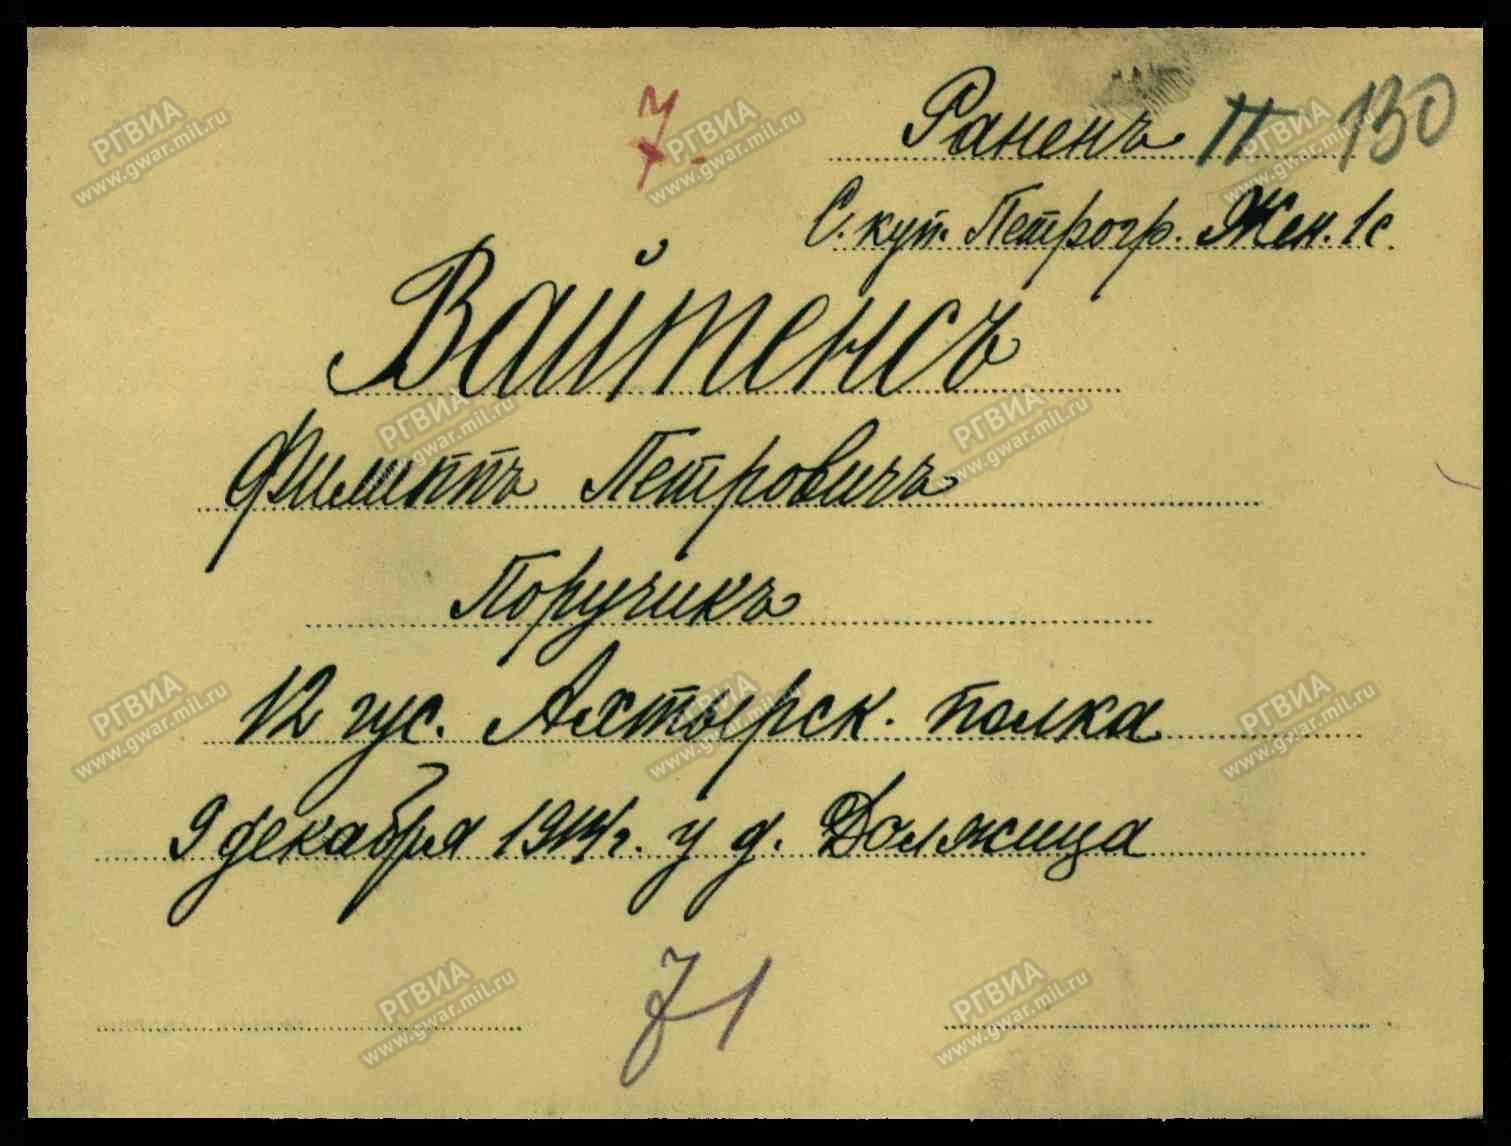 7.
Раненъ II 130
С. куп. Петрогр. Жен. 1с.
Вайтенсъ
Филиппъ Петровичъ
Поручикъ
12 гус. Ахтырск. полка
9 декабря 1914 г. у д. Должица
71
РГВИА
www.gwar.mil.ru